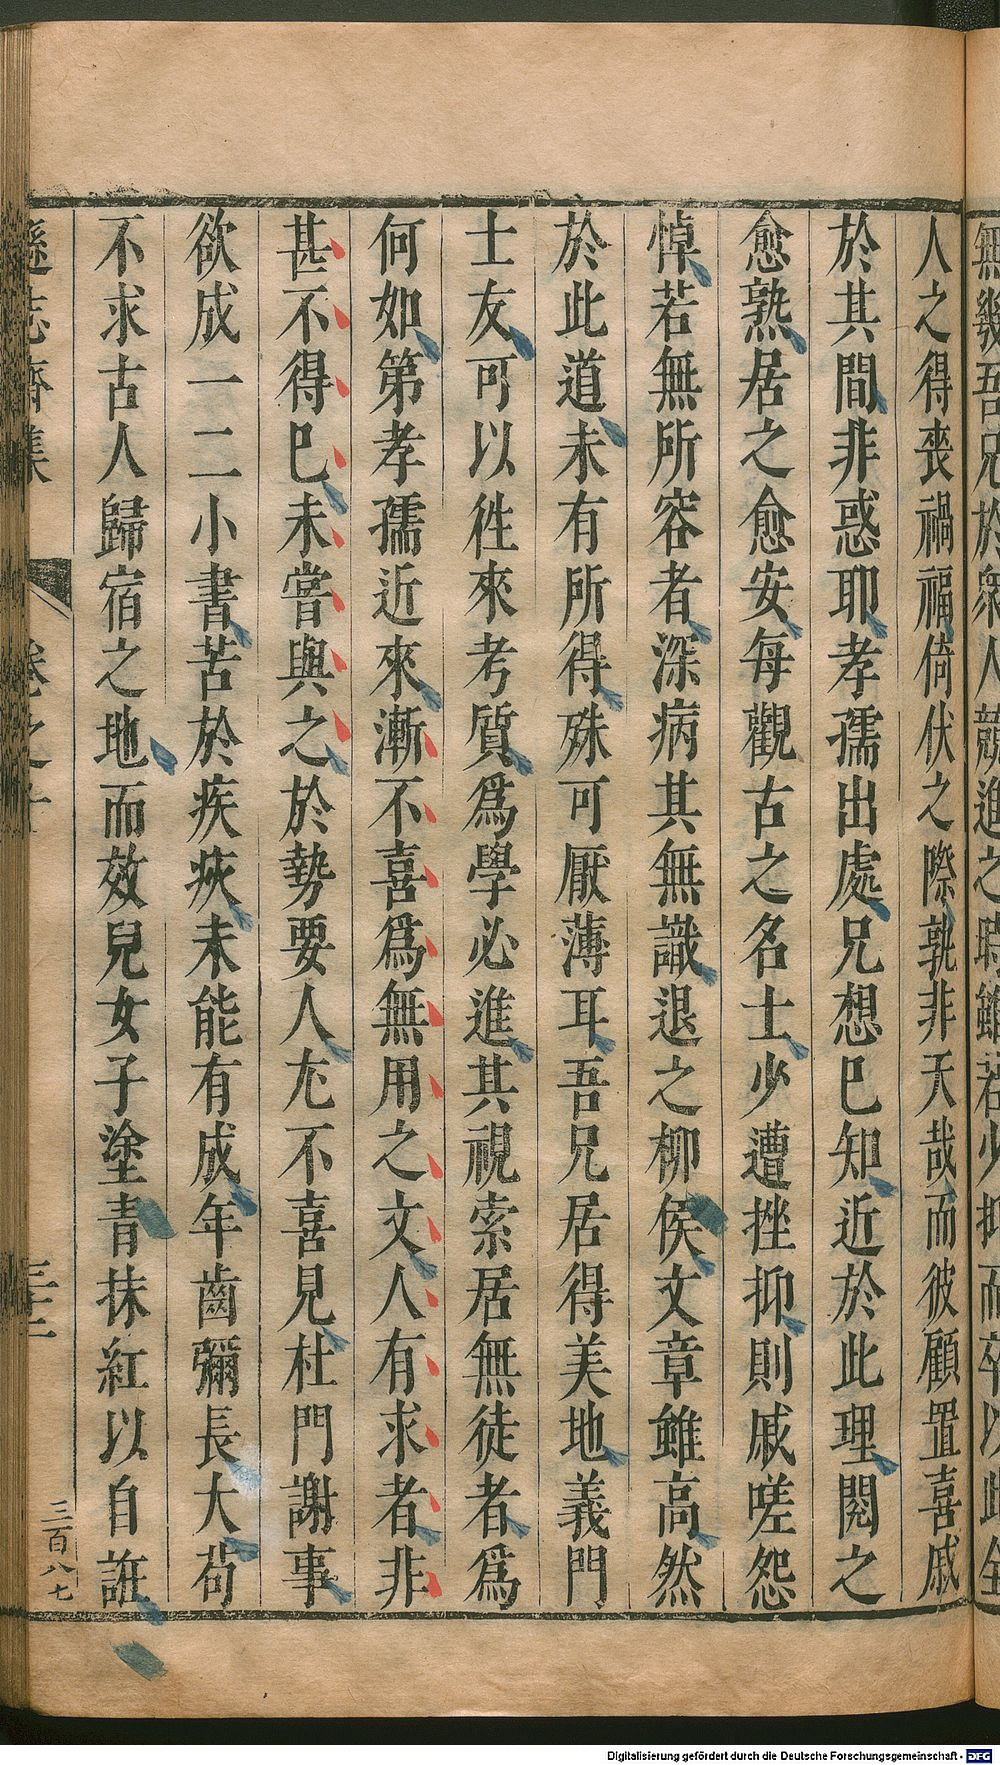 人之得喪禍福倚伏之際孰非天哉而彼顧置喜戚
於其間非惑耶孝孺出處兄想已知近於此理閱之
愈熟居之愈安每觀古之名士少遭挫抑則戚嗟怨
悼若無所容者深病其無識退之柳侯文章雖高然
於此道未有所得殊可厭薄耳吾兄居得美地義門
士友可以徃來考質爲學必進其視索居無徒者爲
何如第孝孺近來漸不喜爲無用之文人有求者非
甚不得已未嘗與之於勢要人尤不喜見杜門謝事
欲成一二小書苦於疾疢未能有成年齒彌長大苟
不求古人歸宿之地而效兒女子塗青抹紅以自誑
遜志齋集
卷之十
三十二
三百八七
Digitalisierung gefördert durch die Deutsche Forschungsgemeinschaft - DFG